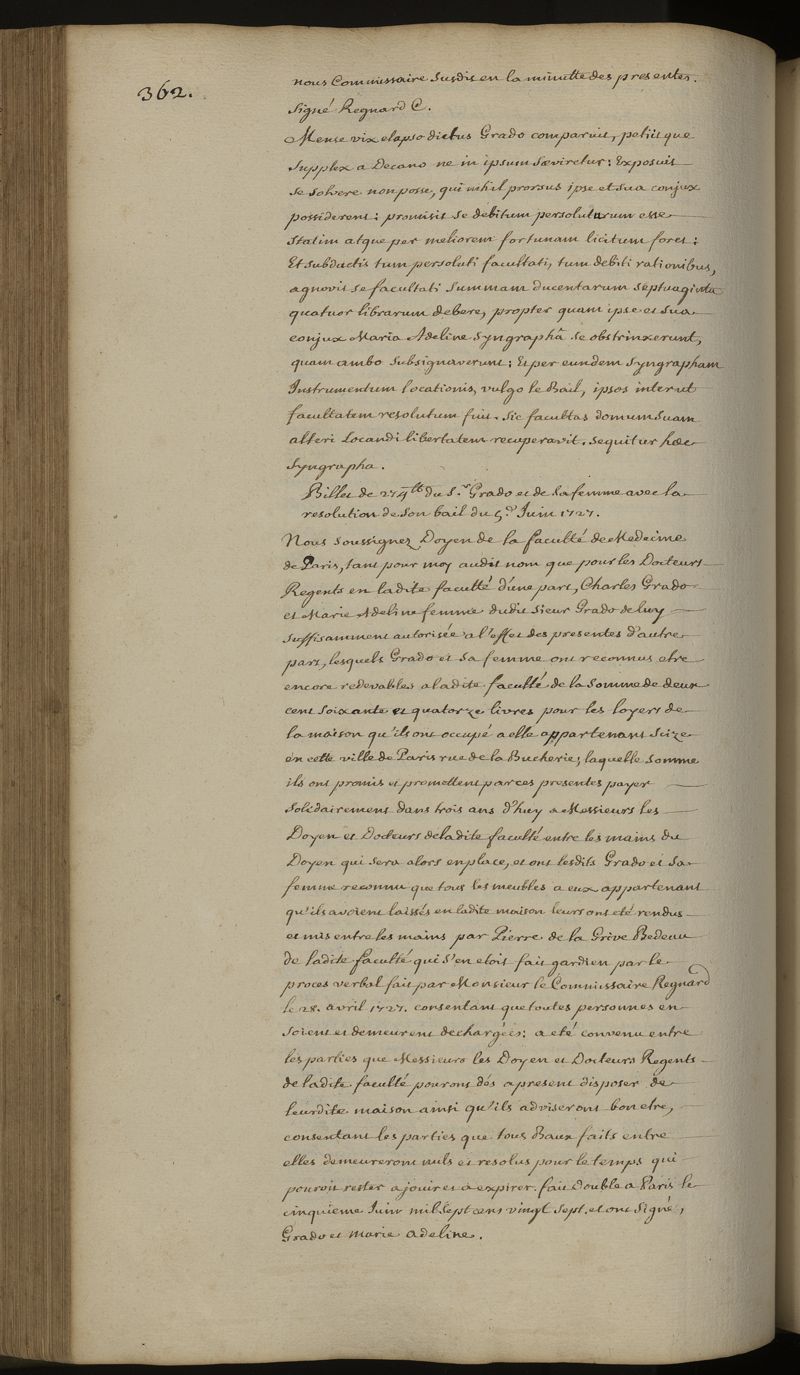 362.
nous Commissaire susdit en la minutte des presentes.
Signé Regnard C.
Mense vix elapso dictus Grado comparuit, petiit que
supplex a Decano ne in ipsum sæviretur: Exposuit
se solvere non posse, qui nihil prorsus ipse et sua conjux
possiderent: promisit se debitum persoluturum esse
statim atque per meliorem fortunam licitum foret:
Et subductis tum persoluti facultati, tum debiti rationibus,
agnovit se facultati summam ducentarum septuaginta
quatuor librarum debere, propter quam ipse et sua
conjux Maria Adeline syngraphâ se obstrinxerunt,
quam ambo subsignaverunt; Et per eundem syngrapham
Instrumentum locationis, vulgo le Bail, ipsos inter et
facultatem resolutum fuit. Sic facultas domum suam
alteri Locandi libertatem recuperavit. sequitur hæc
syngrapha.
Billet de 274lt du S.r Grado et de sa femme avec la
resolution de son bail du 5.e Juin 1727.
Nous soussignez Doyen de la faculté de Medecine
de Paris, tant pour moy audit nom que pour les Docteurs
Regents en ladite faculté d'une part, Charles Grado
et Marie Adeline femme dudit sieur Grado de luy
suffisamment autorisée a l'effet des presentes d'autre
part, lesquels Grado et sa femme ont reconnus etre
encore redevables a ladite faculté de la somme de deux
cent soixante et quatorze livres pour les loyers de
la maison qu'ils ont occupé a elle appartenant Scize
en cette ville de Paris rue de la Bucherie; laquelle somme
ils ont promis et promettent par ces presentes payer
solidairement dans trois ans d'huy a Messieurs les
Doyen et Docteurs de ladite faculté entre les mains du
Doyen qui sera alors en place, et ont lesdits Grado et sa
femme reconnu que tous les meubles a eux appartenant
qu'ils avoient laissés en ladite maison leurs ont eté rendus
et mis entre les mains par Pierre de la Grève Bedeau
de ladite faculté qui s'en etoit fait gardien par le
proces verbal fait par Monsieur le Commissaire Regnard
le 28. avril 1727. consentant que toutes personnes en
soient et demeurent dechargées: a eté convenu entre
les parties que Messieurs les Doyen et Docteurs Regents
de ladite faculté pouront dés apresent disposer de
leurdite maison ainsi qu'ils adviseront bon etre,
consentant les parties que tous Baux faits entre
elles demeureront nuls et resolus pour le temps qui
pouroit rester a jouir et a expirer. fait Double a Paris le
cinquieme Juin mil sept cens vingt sept. et ont signé,
Grado et Marie Adeline.